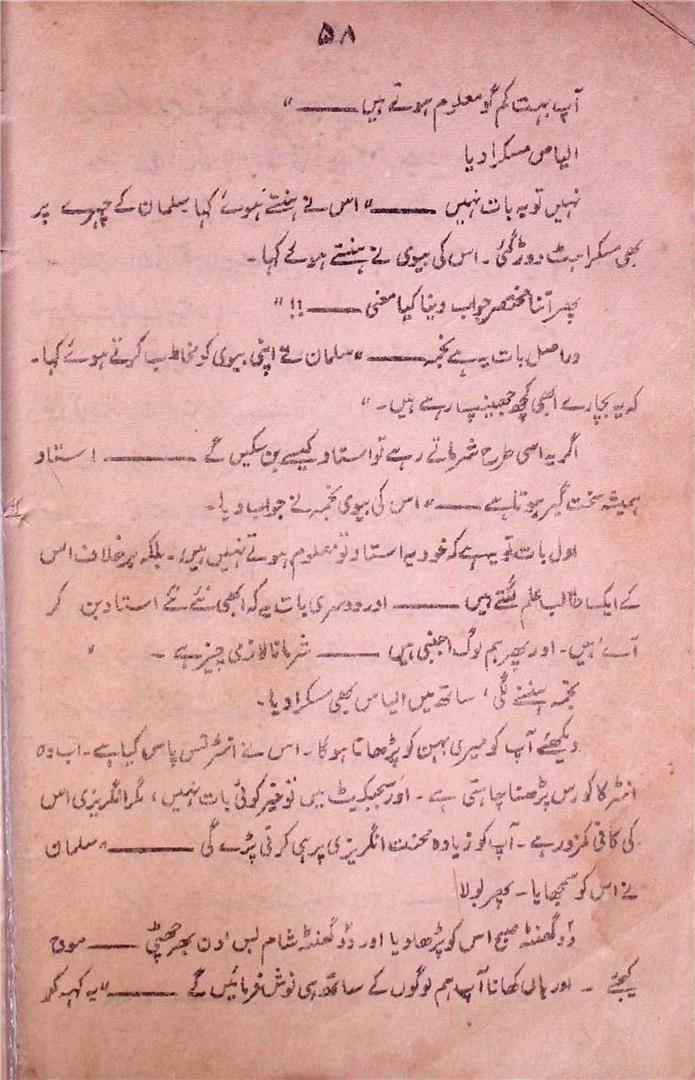 ۵۸
آپ بہت کم گو معلوم ہوتے ہیں ——"
الیاس مسکرا دیا
نہیں تو یہ بات نہیں ——" اس نے ہنستے ہوئے کہا سلمان کے چہرے پر
بھی مسکراہٹ دوڑ گئی۔ اس کی بیوی نے ہنستے ہوئے کہا۔
پھر اتنا مختصر جواب دینا کیا معنی ——!!"
دراصل بات یہ ہے نجمہ ——" سلمان نے اپنی بیوی کو مخاطب کرتے ہوئے کہا۔
کہ یہ بچارے ابھی کچھ جھینپ رہے ہیں۔"
اگر یہ اسی طرح شرماتے رہے تو استاد کیسے بن سکیں گے —— استاد
ہمیشہ سخت گیر ہوتا ہے ——" اس کی بیوی نجمہ نے جواب دیا۔
اول بات تو یہ ہے کہ خود یہ استاد تو معلوم ہوتے نہیں ہیں۔ بلکہ برخلاف اس
کے ایک طالب علم لگتے ہیں —— اور دوسری بات یہ کہ ابھی نئے نئے استاد بن کر
آئے ہیں۔ اور پھر ہم لوگ اجنبی ہیں —— شرمانا لازمی چیز ہے۔"
نجمہ ہنسنے لگی، ساتھ میں الیاس بھی مسکرا دیا۔
دیکھئے آپ کو میری بہن کو پڑھانا ہوگا۔ اس نے انٹرنس پاس کیا ہے۔ اب وہ
انٹر کا کورس پڑھنا چاہتی ہے۔ اور سبجیکٹ میں تو خیر کوئی بات نہیں، مگر انگریزی اس
کی کافی کمزور ہے۔ آپ کو زیادہ محنت انگریزی پر ہی کرنی پڑے گی ——" سلمان
نے اس کو سمجھایا۔ پھر بولا
دو گھنٹہ صبح اس کو پڑھا دیا اور دو گھنٹہ شام بس دن بھر چھٹی —— موج
کیجئے۔ اور ہاں کھانا آپ ہم لوگوں کے ساتھ ہی نوش فرمائیں گے ——" یہ کہہ کر